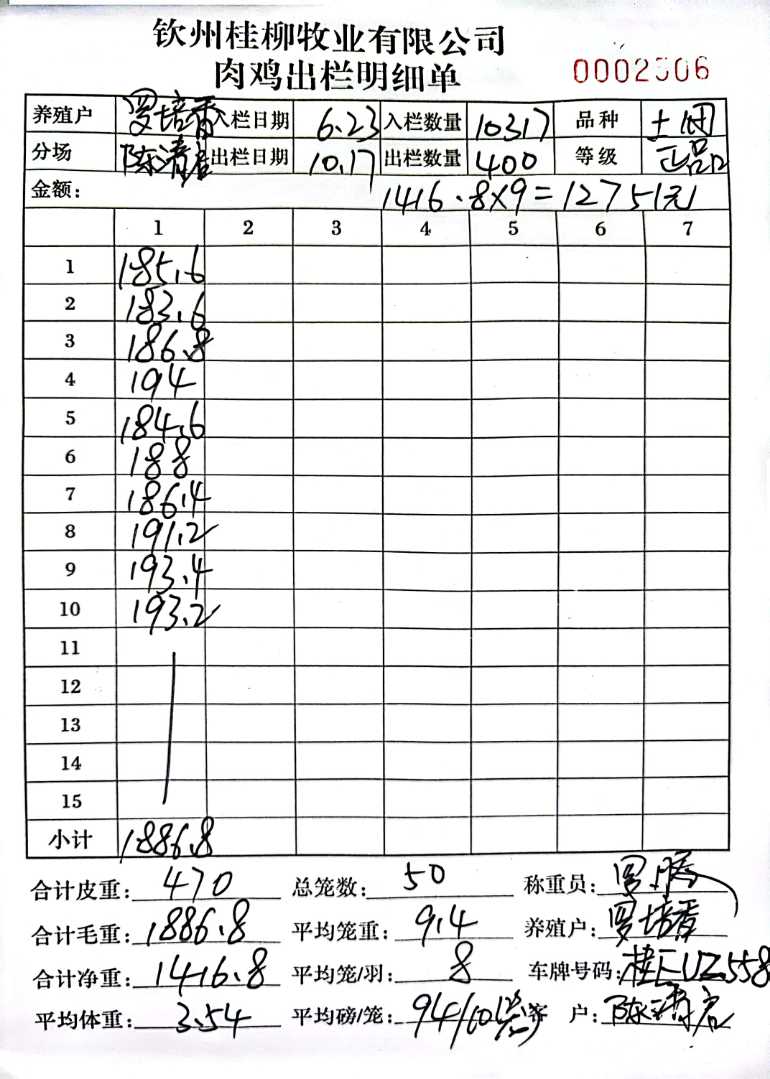 钦州桂柳牧业有限公司
肉鸡出栏明细单 0002506
养殖户 罗培香 入栏日期 6.23 入栏数量 10317 品种 土
分场 陈清 出栏日期 10.17 出栏数量 400 等级 正品
金额: 1416.8×9=12751元
1 2 3 4 5 6 7
1 185.6
2 183.6
3 186.8
4 194
5 184.6
6 188
7 186.4
8 191.2
9 193.4
10 193.2
11
12
13
14
15
小计 1886.8
合计皮重: 470 总笼数: 50 称重员: 罗腾
合计毛重: 1886.8 平均笼重: 9.4 养殖户: 罗培香
合计净重: 1416.8 平均笼/羽: 8 车牌号码: 桂EUZ558
平均体重: 3.54 平均磅/笼: 94/10 客 户: 陈清